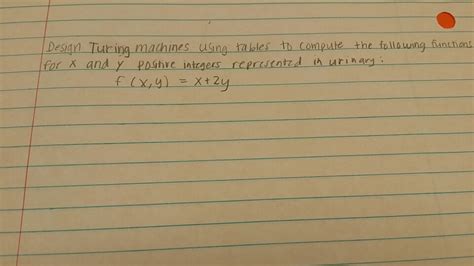 Design Turing machines using tables to compute the following functions
for x and y positive integers represented in urinary:
f (x,y) = x+2y